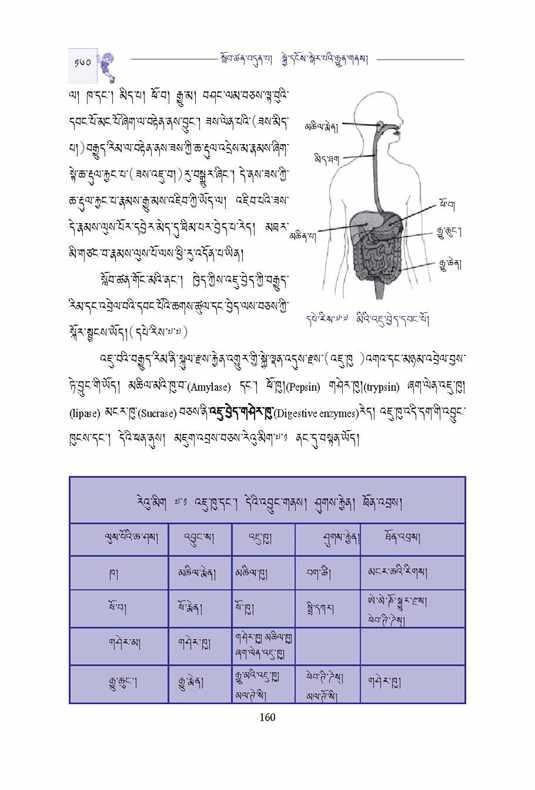 ༡༦༠
སློབ་ཚན་བདུན་པ། སྐྱེ་དངོས་སྐེར་བའི་རྒྱུན་གནས།
ལ། ཁ་དང་། མིད་པ། ཕོ་བ། རྒྱུ་མ། བཤང་ལམ་བཅས་ལྟ་བུའི་
དབང་པོ་མང་པོ་ཞིག་ལ་བརྟེན་ནས་བྱུང་། ཟས་ལེན་པའི་(ཟས་མིད་
པ།)བརྒྱུད་རིམ་ལ་བརྟེན་ནས་ཟས་ཀྱི་ཆ་རྡུལ་འདྲེས་མ་རྣམས་ཞིག་
སྟེ་ཆ་རྡུལ་རྐྱང་པ་(ཟས་འཇུ་བ།)རུ་བསྒྱུར་ཞིང་། དེ་ནས་ཟས་ཀྱི་
ཆ་རྡུལ་རྐྱང་པ་རྣམས་རྒྱུ་མས་འཇིབ་ཀྱི་ཡོད་ལ། འཇིབ་པའི་ཟས་
དེ་རྣམས་ལུས་པོར་དབྱེར་མེད་དུ་ཐིམ་པར་བྱེད་པ་རེད། མཐར་
མི་གཙང་བ་རྣམས་ལུས་པོ་ལས་ཕྱི་རུ་འདོན་པ་ཡིན།
མཆིལ་རྨེན།
མིད་ཤག
ཕོ་བ།
མཆིན་པ།
རྒྱུ་ཆུང་།
རྒྱུ་ཆེན།
དཔེ་རིས་༧་༧ མིའི་འཇུ་བྱེད་དབང་པོ།
སློབ་ཚན་གོང་མའི་ནང་། ཁྱེད་ཀྱིས་འཇུ་བྱེད་ཀྱི་བརྒྱུད་
རིམ་དང་འབྲེལ་བའི་དབང་པོའི་ཆགས་ཚུལ་དང་བྱེད་ལས་བཅས་ཀྱི་
སྐོར་སྦྱངས་ཡོད།(དཔེ་རིས་༧་༧)
འཇུ་བའི་བརྒྱུད་རིམ་ནི་སྐུལ་རྫས་རྐྱེན་འགྱུར་གྱི་སྐྱེ་ལྡན་འདུས་རྫས་(འཇུ་ཁུ)འགའ་དང་མཉམ་འབྲེལ་བྱས་
ཏེ་བྱུང་གི་ཡོད། མཆིལ་མའི་ཁུ་བ་(Amylase) དང་། ཕོ་ཁུ།(Pepsin) གཤེར་ཁུ།(trypsin) ཞག་ལེན་འཇུ་ཁུ།
(lipase) མངར་ཁུ་(Sucrase) བཅས་ནི་འཇུ་བྱེད་གཤེར་ཁུ་(Digestive enzymes)རེད། འཇུ་ཁུ་འདི་དག་གི་འབྱུང་
ཁུངས་དང་། དེའི་ཕན་ནུས། མཇུག་འབྲས་བཅས་རེའུ་མིག་༧་༡ ནང་དུ་བསྟན་ཡོད།
རེའུ་མིག ༧་༡ འཇུ་ཁུ་དང་། དེའི་འབྱུང་གནས། ཤུགས་རྐྱེན། ཐོན་འབྲས།
ལུས་པོའི་ཆ་ཤས། འབྱུང་ས། འཇུ་ཁུ། ཤུགས་རྐྱེན། ཐོན་འབྲས།
ཁ། མཆིལ་རྨེན། མཆིལ་ཁུ། བག་ཆི། མངར་ཆའི་རིགས།
ཕོ་བ། ཕོ་རྨེན། ཕོ་ཁུ། སྤྲི་དཀར། ཨེ་མེ་ནོ་སྐྱུར་རྫས།
པེབ་ཊི་ཌེས།
གཤེར་མ། གཤེར་ཁུ། གཤེར་ཁུ། མཆིལ་ཁུ།
ཞག་ལེན་འཇུ་ཁུ།
རྒྱུ་ཆུང་། རྒྱུ་རྨེན། རྒྱུ་མའི་འཇུ་ཁུ། པེབ་ཊི་ཌེས། གཤེར་ཁུ།
མལ་ཊེ་སི། མལ་ཊོ་སི།
160